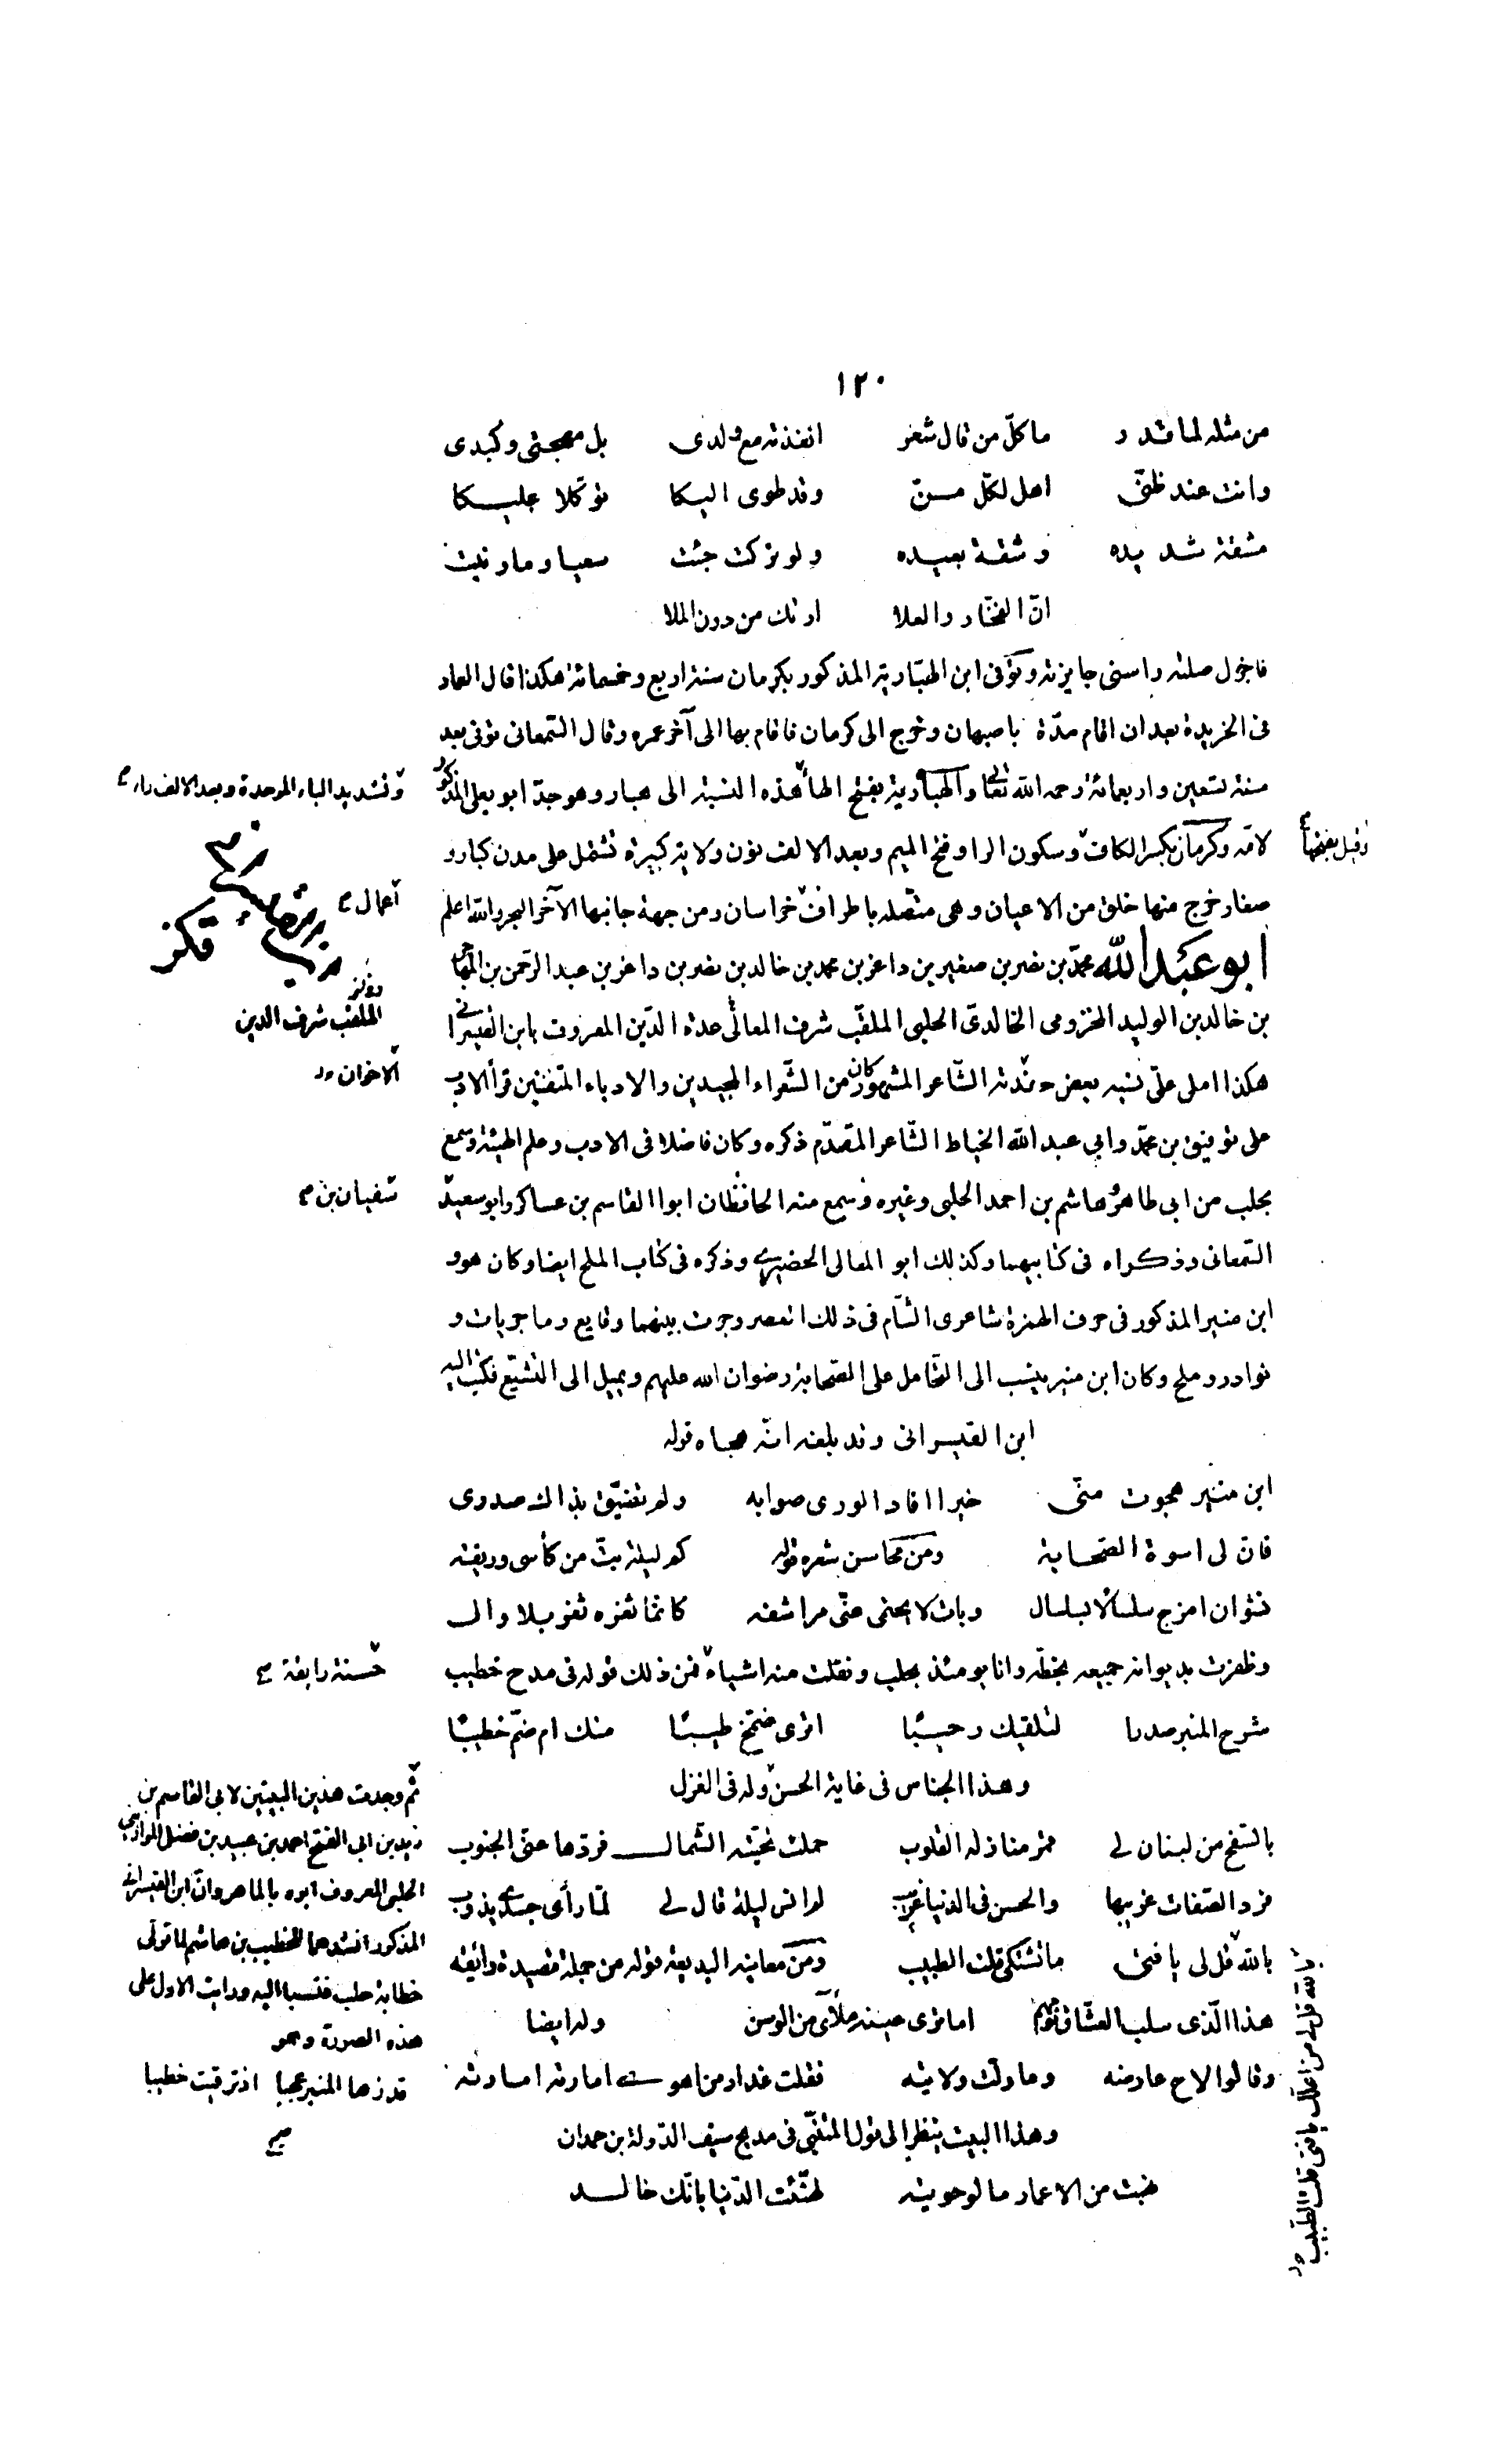 ١٢٠
من مثله لما قدر ما كلّ من قال شعر انفذته مع ولدى بل مهجتى وكبدى
وانت عند ظنّى اهل لكلّ منّ وقد طوى اليكا توكلا عليكا
مشقة شديده وشقة بعيده ولو تركت جئت سعيا وما ونيت
انّ الفخار والعلا ارثك من دون الملا
فاجزل صلته واسنى جايزته وتوفى ابن الهبّارية المذكور بكرمان سنة اربع وخمسمائة هكذا قال العماد
فى الخريدة بعد ان اقام مدّة باصبهان وخرج الى كرمان فاقام بها الى آخر عمره وقال السّمعانى توفى بعد
سنة تسعين واربعمائة رحمه الله تعالى والهبارية بفتح الهاء هذه النسبة الى هبار وهو جدّ ابو يعلى المذكور
وتشديد الباء الموحدة وبعد الالف راء
لامّه وكرمان بكسر الكاف وسكون الرا وفتح الميم وبعد الالف نون ولاية كبيرة تشتمل على مدن كبار و
وقيل بفتحها
صغار خرج منها خلق من الاعيان وهى متصله باطراف خراسان ومن جهة جانبها الآخر البحر والله اعلم
اعمال
ابو عبد الله محمّد بن نصر بن صغير بن داغر بن محمد بن خالد بن نصر بن داغر بن عبد الرّحمن بن المهاجر
بن خالد بن الوليد المخزومى الخالدىّ الحلبى الملقّب شرف المعالى عدة الدّين المعروف بابن القيسرانى
الملقب شرف الدين
هكذا املى علىّ نسبه بعض حفدته الشّاعر المشهور كان من الشّعراء المجيدين والادباء المتفننين قرأ الادب
الاخوان
على توفيق بن محمّد وابى عبد الله الخياط الشّاعر المقدّم ذكره وكان فاضلا فى الادب وعلم الهيئة وسمع
بحلب من ابى طاهر هاشم بن احمد الحلبى وغيره وسمع منه الحافظان ابوا القاسم بن عساكر وابو سعيد
السّمعانى وذكراه فى كتابيهما وكذلك ابو المعالى الحضيرى وذكره فى كتاب الملح ايضا وكان هو و
ابن منير المذكور فى حرف الهمزة شاعرى الشّام فى ذلك العصر وجرت بينهما وقايع وماجريات و
نوادر وملح وكان ابن منير ينسب الى التّحامل على الصّحابة رضوان الله عليهم ويميل الى التشيّع فكتب اليه
ابن القيسرانى وقد بلغه انّه هجاه قوله
ابن منير هجوت منّى خبرا افاد الورى صوابه ولم تضيّق بذاك صدرى
فانّ لى اسوة الصّحابة ومن محاسن شعره قوله كم ليلة بتّ من كأسى وريقته
نشوان امزج سلسالا بسلسال وبات لا يحتمى عنّى مراشفه كانّما ثغره ثغر بلا وال
وظفرت بديوانه جميعه بخطّه وانا يومئذ بحلب ونقلت منه اشياء فمن ذلك قوله فى مدح خطيب
حسنة رايقة
شرح المنبر صدرا لتلقيك رحيبا اترى ضمّخ طيبا منك ام ضمّ خطيبا
وهذا الجناس فى غاية الحسن وله فى الغزل
بالسّفح من لبنان لى قمر منازله القلوب حملت تحيّته الشّمال فردّها عنّى الجنوب
فرد الصّفات غريبها والحسن فى الدّنيا غريب لم انس ليلة قال لى لمّا رأى جسدى يذوب
بالله قل لى يا فتى ما تشتكى قلت الطّبيب ومن معانيه البديعة قوله من جملة قصيدة رائقة
هذا الّذى سلب العشّاق نومهم اما ترى عينه ملأى من الوسن وله ايضا
وقالوا لاح عارضه وما ولّت ولايته فقلت عذار من اهوى امارته امارته
وهذا البيت ينظر الى قول المتنبّى فى مديح سيف الدّولة بن حمدان
نهبت من الاعمار ما لو حويته لهنّئت الدّنيا بانّك خالد
ثم وجدت هذين البيتين لابى القاسم بن
زيد بن ابى الفتح احمد بن عبيد بن فضل الموازينى
الحلبى المعروف ابوه بالماهر وانّ ابن القيسرانى
المذكور انشدهما للخطيب بن هاشم لما تولّى
خطابة حلب فنسبا اليه ورايت الاول على
هذه الصورة وهو
قد زها المنبر عجبا اذ ترقيت خطيبا
بالله قل لى من اعلّك يا فتى قلت الطّبيب